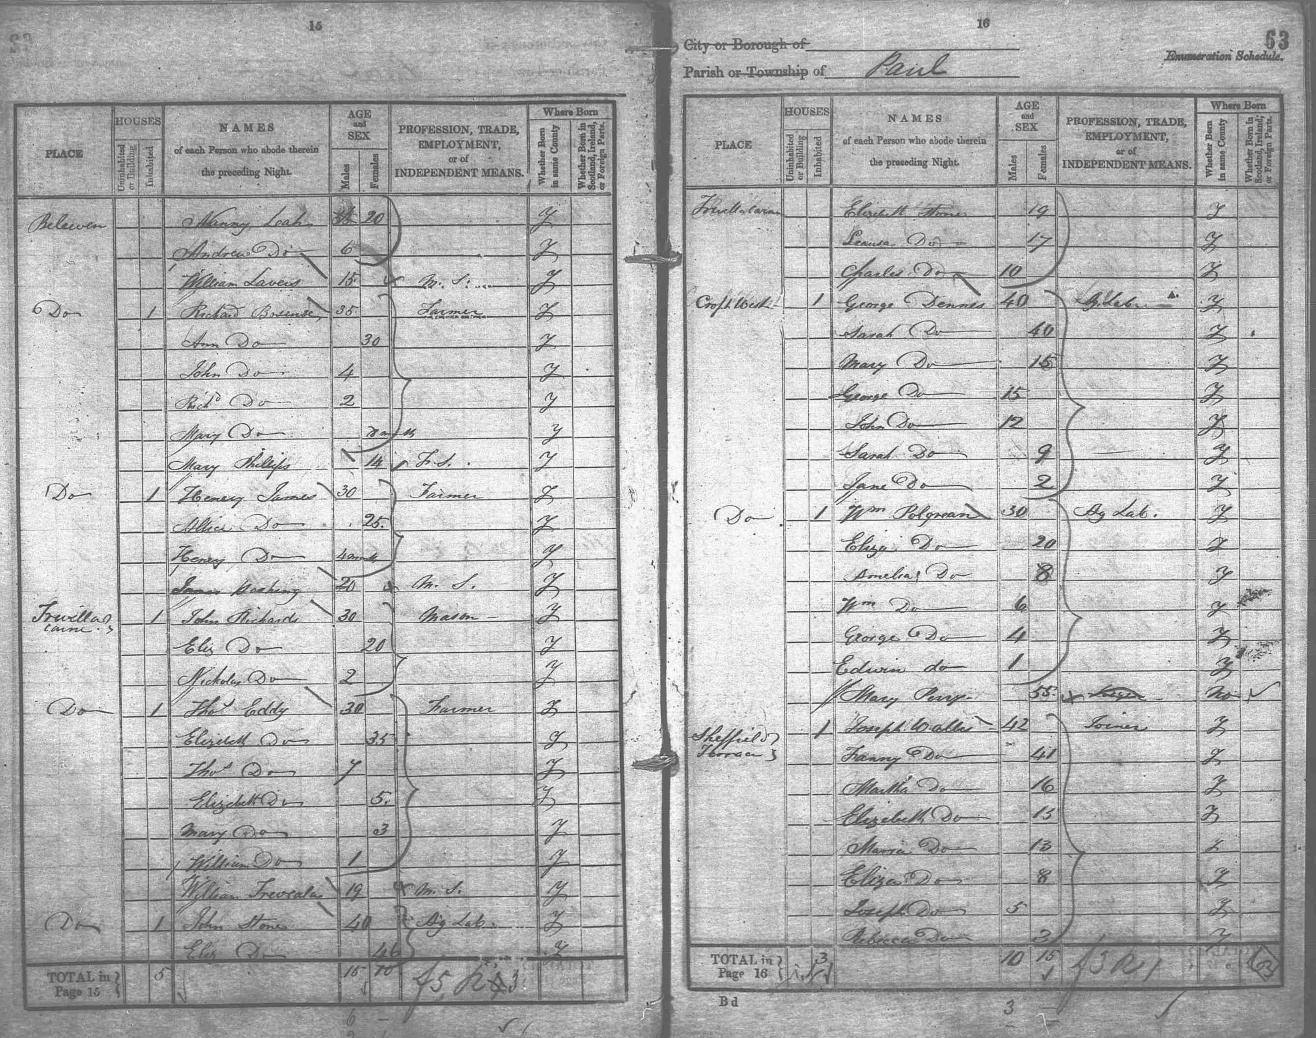 15
PLACE HOUSES Uninhabited or Building Inhabited NAMES of each Person who abode therein the preceding Night. AGE and SEX Males Females PROFESSION, TRADE, EMPLOYMENT, or of INDEPENDENT MEANS. Where Born Whether Born in same County Whether Born in Scotland, Ireland, or Foreign Parts.
Nanny Leah 20 Y
Andrew Do 6 Y
William Lavers 15 M. S. Y
Do 1 Richard 35 Farmer Y
Ann Do 30 Y
John Do 4 Y
Richd Do 2 Y
Mary Do Y
Mary Phillips 14 F. S. Y
Do 1 Henry James 30 Farmer Y
Do 25 Y
Henry Do Y
James 20 M. S. Y
1 John Richards 30 Mason Y
Eliz Do 20 Y
Nicholas Do 2 Y
Do 1 Thos Eddy 30 Farmer Y
Elizabeth Do 35 Y
Thos Do 7 Y
Elizabeth Do 5 Y
Mary Do 3 Y
William Do 1 Y
William 19 M. S. Y
Do 1 John Stone 40 Ag Lab. Y
Eliz Do Y
TOTAL in Page 15 5 15 10
16
63
City or Borough of
Enumeration Schedule.
Parish or Township of Paul
PLACE HOUSES Uninhabited or Building Inhabited NAMES of each Person who abode therein the preceding Night. AGE and SEX Males Females PROFESSION, TRADE, EMPLOYMENT, or of INDEPENDENT MEANS. Where Born Whether Born in same County Whether Born in Scotland, Ireland, or Foreign Parts.
Elizabeth Stone 19 Y
Do 17 Y
Charles Do 10 Y
Croft West 1 George Dennis 40 Ag Lab Y
Sarah Do 40 Y
Mary Do 15 Y
George Do 15 Y
John Do 12 Y
Sarah Do 9 Y
Jane Do 2 Y
Do 1 Wm Polgrean 30 Ag Lab. Y
Eliza Do 20 Y
Amelia Do 8 Y
Wm Do 6 Y
George Do 4 Y
Edwin do 1 Y
Mary Perry 55 No
Sheffield Terrace 1 Joseph Wallis 42 Joiner Y
Fanny Do 41 Y
Martha Do 16 Y
Elizabeth Do 15 Y
Maria Do 13 Y
Eliza Do 8 Y
Joseph Do 5 Y
Rebecca Do 3 Y
TOTAL in Page 16 3 10 15
Bd
3